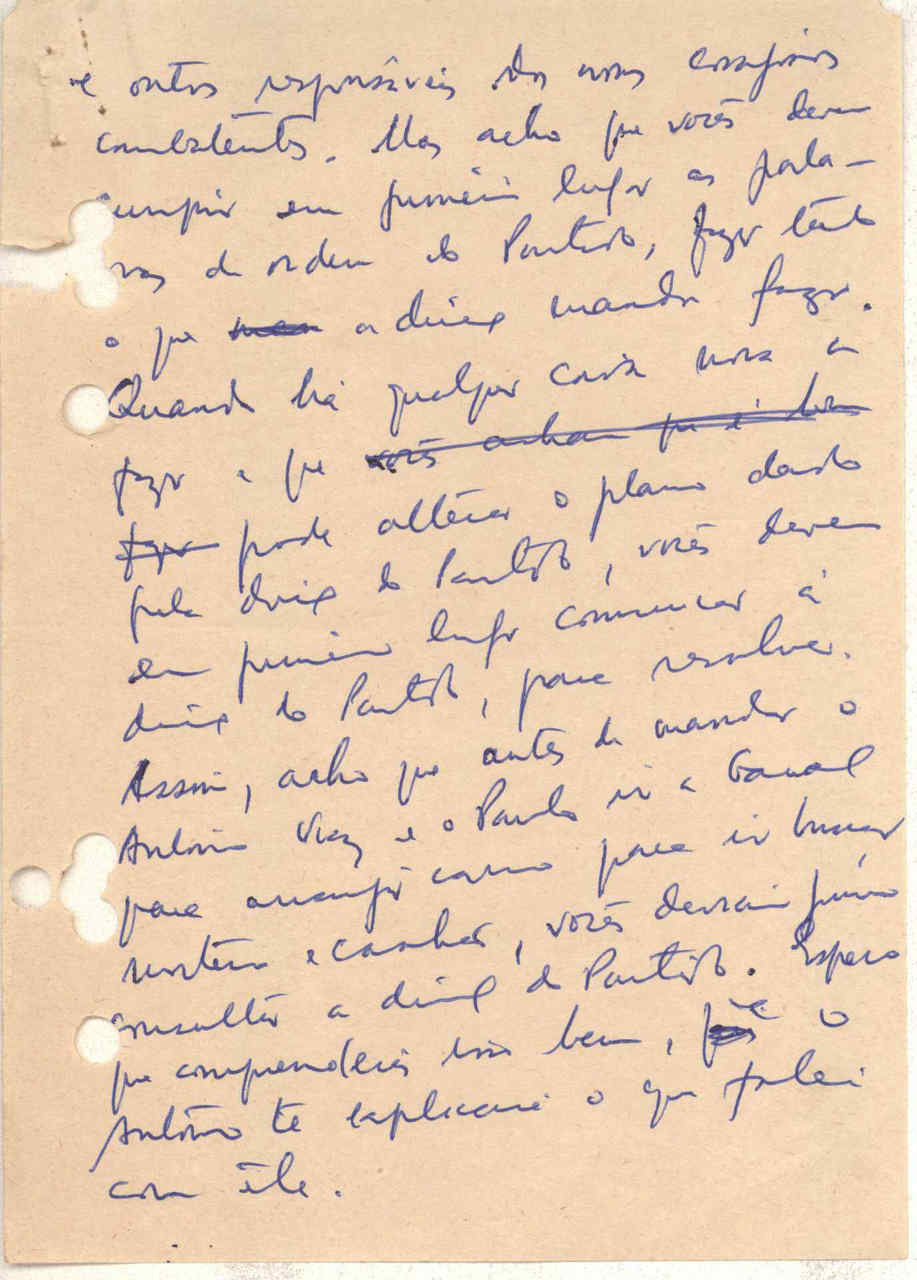 e outros responsáveis dos nossos corajosos
combatentes. Mas acho que vocês devem
cumprir em primeiro lugar as pala-
vras de ordem do Partido, fazer tudo
o que a direcç manda fazer.
Quando há qualquer coisa nova a
fazer e que vocês acham que é bom
fazer pode alterar o plano dado
pela direcç do Partido, vocês devem
em primeiro lugar comunicar à
direcç do Partido, para resolver.
Assim, acho que antes de mandar o
António Vaz e o Paulo ir a
para arranjar carro para ir buscar
e , vocês deviam primo
consultar a direcç do Partido. Espero
que compreendeis isso bem, que o
António te explicará o que falei
com êle.